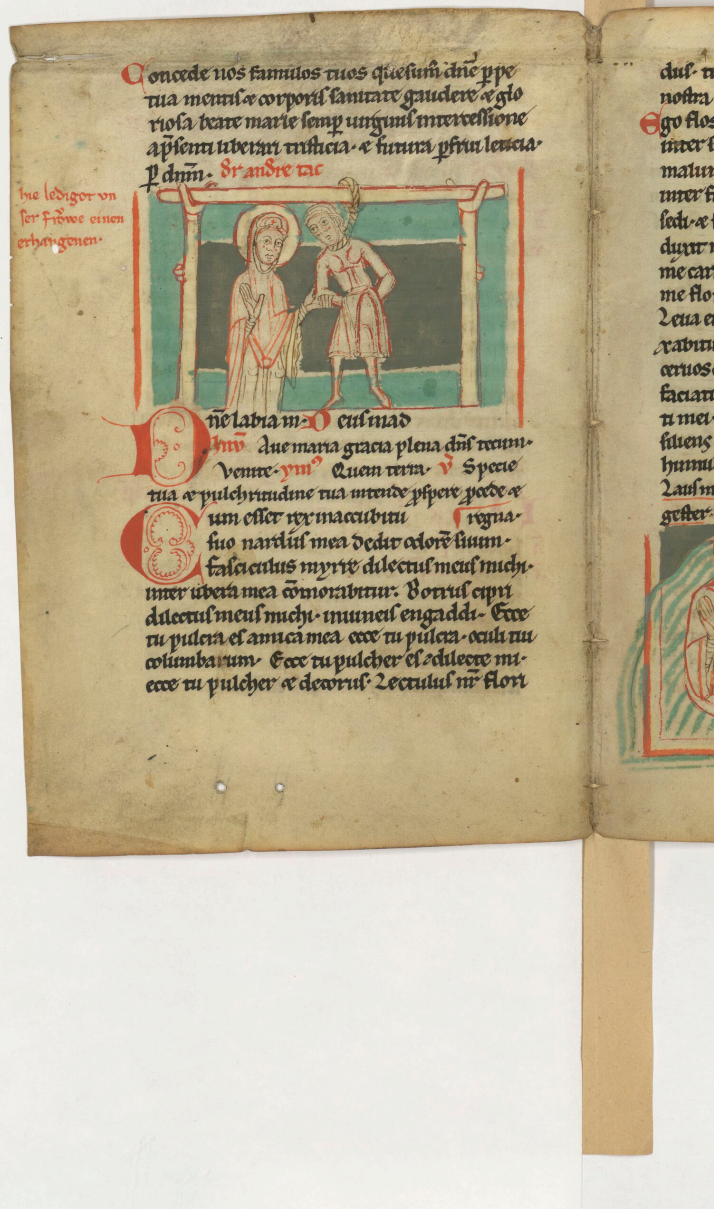 Concede nos famulos tuos quesum᷒ dn̄e ꝑpe
tua mentis & corporis sanitate gaudere & glo
riosa beate marie semꝑ uirginis intercessione
a p̄senti liberari tristicia· & futura ꝑfrui leticia·
ꝑ dnm̄· dr andre tac
hie ledigot vn
ser frowe einen
erhangenen·
Dn̄e labia m· D eus in ad
Inuͥ Aue maria gracia plena dn̄s tecum·
Venite· ymꝰ Quem terra· v̊ Specie
tua & pulchritudine tua intende ꝓspere ꝓcede &
Cum esset rex in accubitu regna·
suo nardus mea dedit odorē suum·
fasciculus myrre dilectus meus michi·
inter ubera mea cōmorabitur· Botrus cipri
dilectus meus michi· in uineis engaddi· Ecce
tu pulcra es amica mea ecce tu pulcra· oculi tui
columbarum· Ecce tu pulcher es dilecte mi·
ecce tu pulcher & decorus· Lectulus nr̄ flori
dus·
nostra
Ego flos
inter
malum
inter
sedi· &
duxit
me
me flo
Leua
xabitu
ceruos
faciati
ti mei·
siliens
hinnu
Laus
gester·